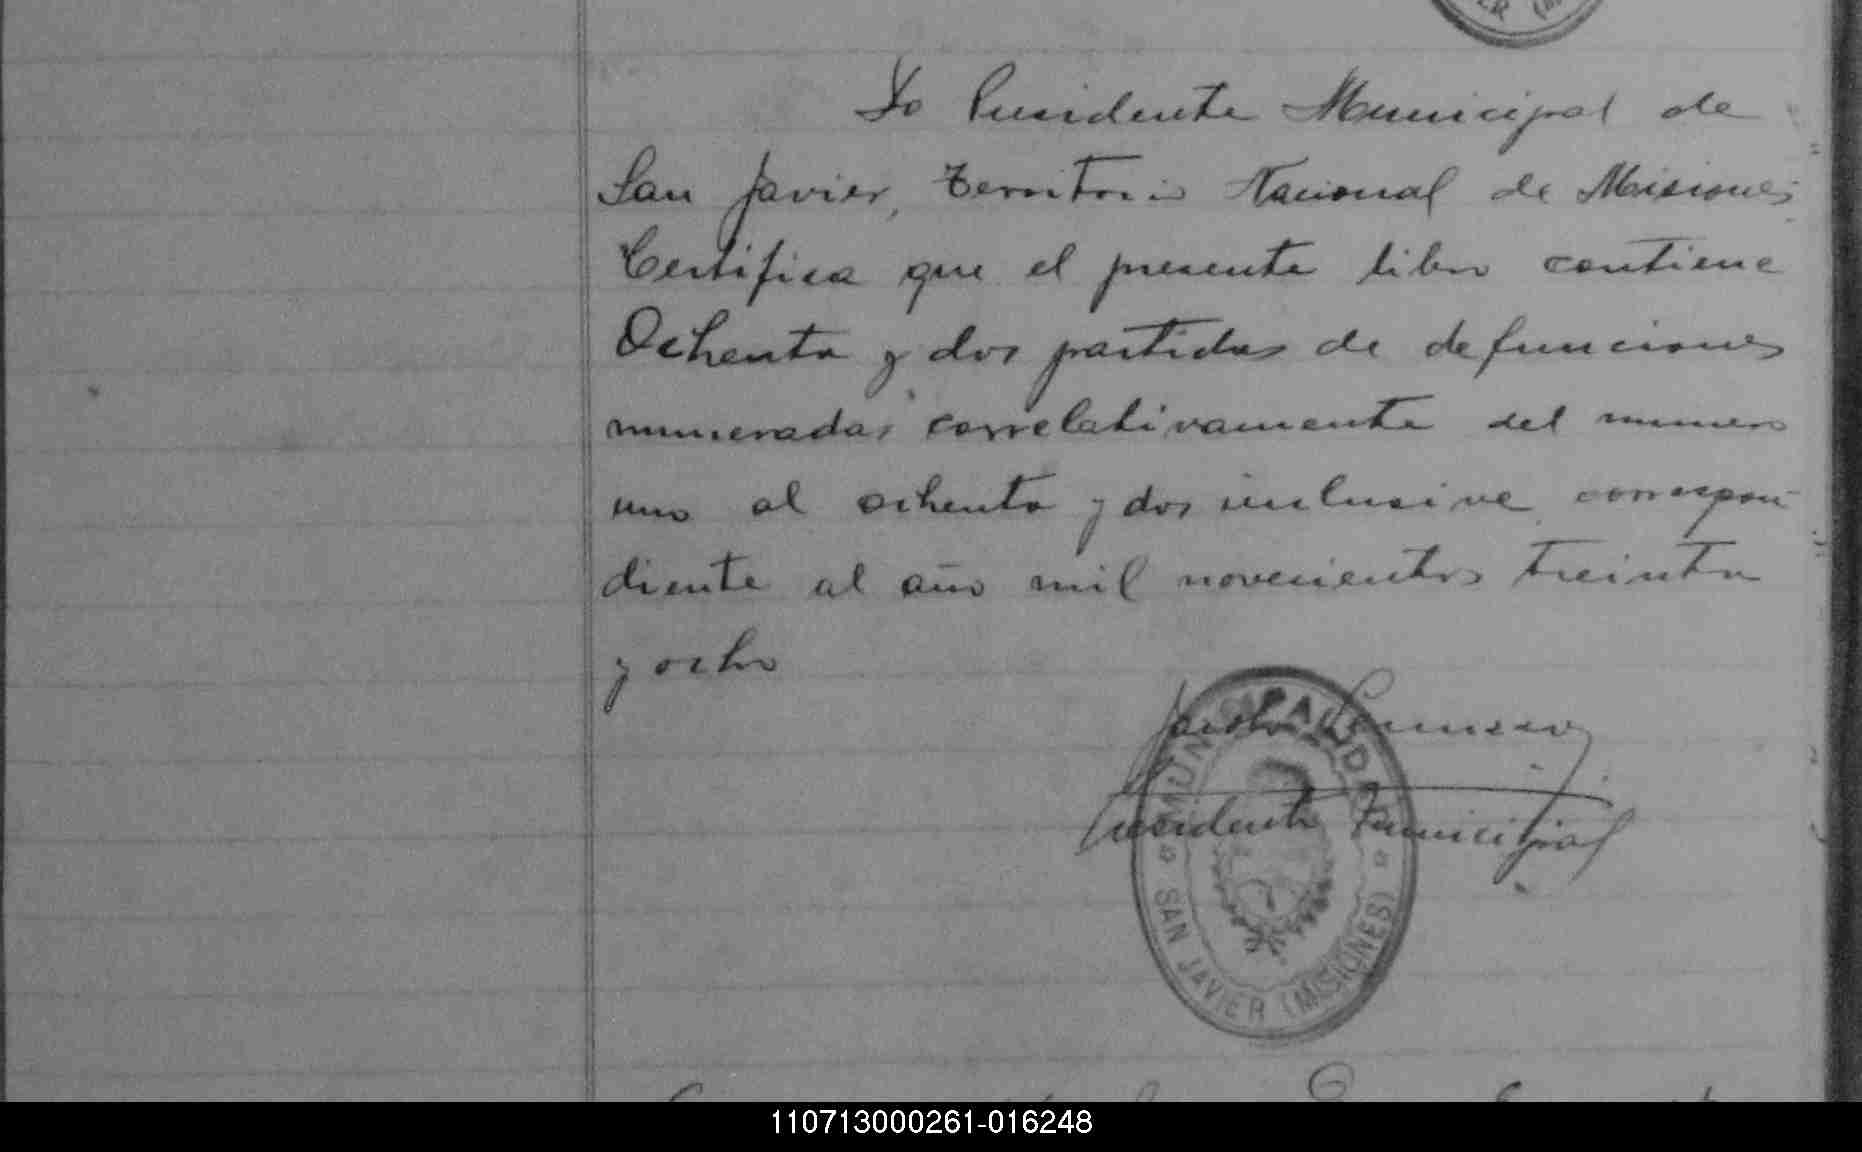 ER (M
Yo Presidente Municipal de
San Javier, Territorio Nacional de Misiones
Certifica que el presente libro contiene
Ochenta y dos partidas de defunciones
numeradas correlativamente del numero
uno al ochenta y dos inclusive correspon
diente al año mil novecientos treinta
y ocho
MUNICIPALIDAD
Presidente Municipal
SAN JAVIER (MISIONES)
110713000261-016248